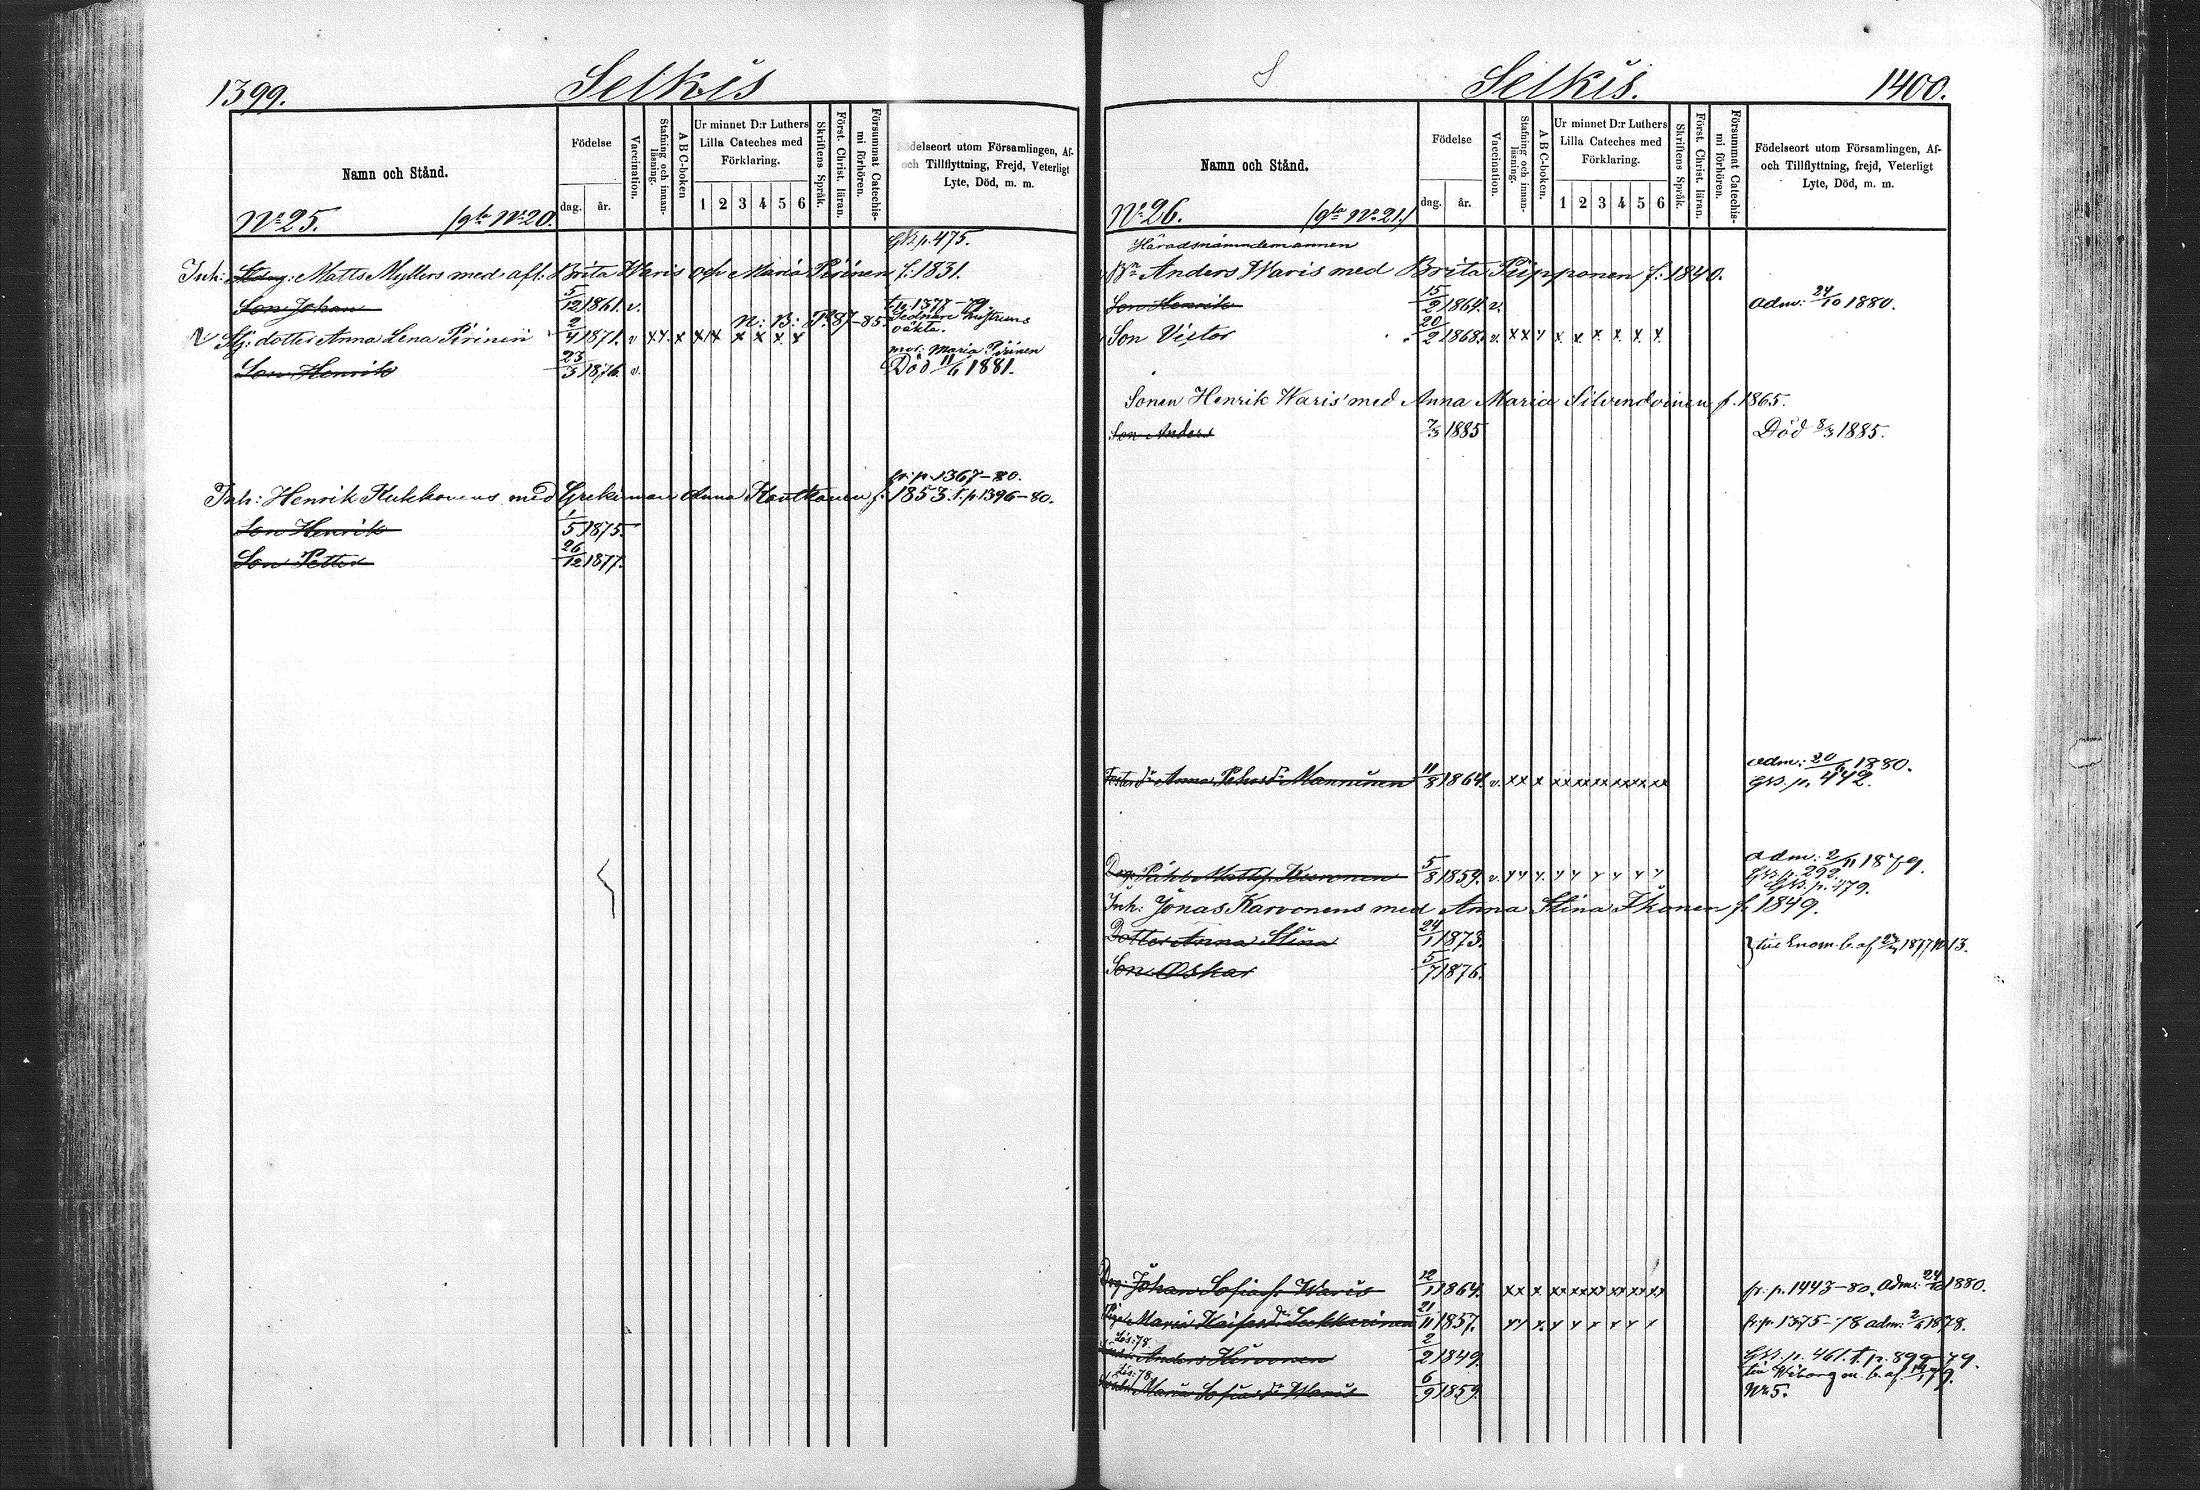 1399.
Selkis
Namn och Stånd.
Födelse
dag.
år.
Vaccination.
Stafning och innan-
läsning.
A B C-boken
Ur minnet D:r Luthers
Lilla Cateches med
Förklaring.
1 2 3 4 5 6
Skriftens Språk.
Först. Christ. läran.
Försummat Catechis-
mi förhören.
Födelseort utom Församlingen, Af-
och Tillflyttning, Frejd, Veterligt
Lyte, Död, m. m.
No 25. (gla No 20.
GB. p. 475.
Inh: Matts Myllers med afl: Brita Waris och Maria Pirinen f. 1831.
Son Johan 5/12 1861. v. t. p. 1377-79
N: B: P. 87-85. hustruns
dotter Anna Lena Pirinen 2/4 1871. v x x x x x x x x x
mor: Maria Pirinen
Son Henrik 23/3 1876. v. Död 11/6 1881.
fr. p. 1367-80.
Inh: Henrik med Anna f. 1853. t. p 1396-80.
Son Henrik 1/5 1875.
Son Petter 26/12 1877.
Selkis.
1400.
Namn och Stånd.
Födelse
dag.
år.
Vaccination.
Stafning och innan-
läsning.
A B C-boken.
Ur minnet D:r Luthers
Lilla Cateches med
Förklaring.
1 2 3 4 5 6
Skriftens Språk.
Först. Christ. läran.
Försummat Catechis-
mi förhören.
Födelseort utom Församlingen, Af-
och Tillflyttning, frejd, Veterligt
Lyte, Död, m. m.
No 26. (gla No 21.)
Häradsnämndemannen
Bn Anders Waris med Brita Piipponen f: 1840.
Son Henrik 15/2 1864. v. adm: 24/10 1880.
Son Victor 20/2 1868. v. x x x x x x x x x
Sonen Henrik Waris med Anna Maria Silvendoinen f. 1865.
Son Anders 7/3 1885 Död 8/3 1885.
adm: 20/6 1880.
Anna Manninen 11/8 1864. v. xx x xx xx xx xx xx xx
GB. p. 442.
adm: 2/11 1879.
5/8 1859. v.
GB. p. 292.
GB. p. 479.
Inh: Jonas Karvonens med Anna Stina Ikonen f. 1849.
Dotter Anna Stina 24/1 1873.
Son Oskar 5/7 1876.
Drg: Johan Waris 12/1 1864. xx x xx xx xx xx xx xx fr. p. 1443-80. Adm: 24/10 1880.
Maria 21/11 1857. fr. p. 1375-78 adm: 1878.
Lös: 78.
Anders Hirvonen 2/2 1849. GB. p. 461. t. p. 899-79.
Lös: 78.
Maria Waris 6/9 1859. Wiborg m. b. af 79.
No 5.